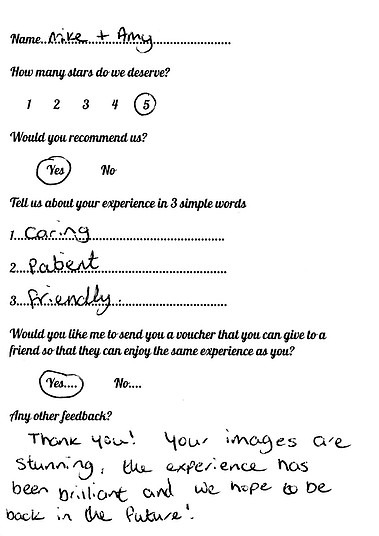 Name..Mike + Amy
How many stars do we deserve?
1 2 3 4 5
Would you recommend us?
Yes No
Tell us about your experience in 3 simple words
1. Caring
2. Patient
3. friendly.
Would you like me to send you a voucher that you can give to a
friend so that they can enjoy the same experience as you?
Yes.... No....
Any other feedback?
Thank you! Your images are
stunning, the experience has
been brilliant and we hope to be
back in the future!